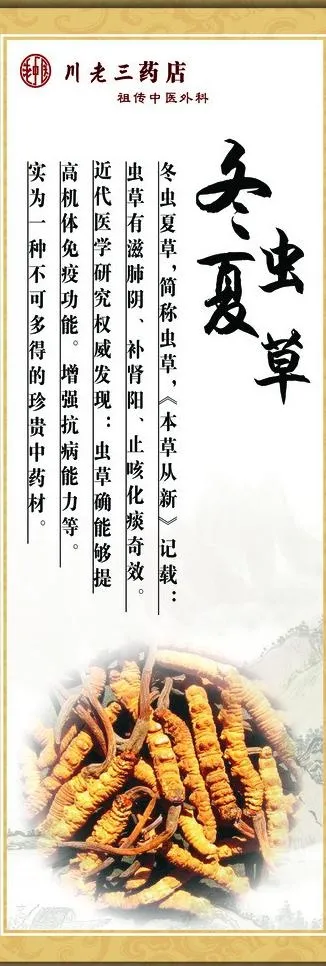 川老三药店
祖传中医外科
冬虫夏草
冬虫夏草，简称虫草，《本草从新》记载：
虫草有滋肺阴、补肾阳、止咳化痰奇效。
近代医学研究权威发现：虫草确能够提
高机体免疫功能。增强抗病能力等。
实为一种不可多得的珍贵中药材。